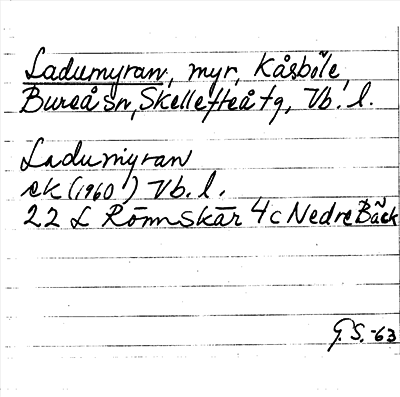 Ladumyran, myr, Kåsböle,
Bureå sn, Skellefteå tg, Vb. l.
Ladumyran
ek (1960) Vb. l.
22 L Rönnskär 4c Nedre Bäck
G. S. -63